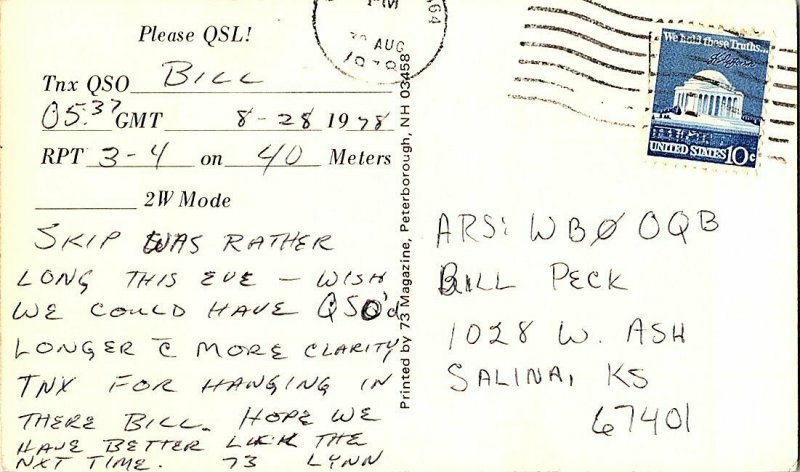 Please QSL!
Tnx QSO BILL
05:37 GMT 8-28 1978
RPT 3-4 on 40 Meters
2W Mode
SKIP WAS RATHER
LONG THIS EVE — WISH
WE COULD HAVE QSO'd
LONGER C̄ MORE CLARITY
TNX FOR HANGING IN
THERE BILL. HOPE WE
HAVE BETTER LUCK THE
NXT TIME. 73 LYNN
Printed by 73 Magazine, Peterborough, NH 03458
PM
AUG
We hold these Truths...
UNITED STATES 10c
ARS: WBØ OQB
BILL PECK
1028 W. ASH
SALINA, KS
67401